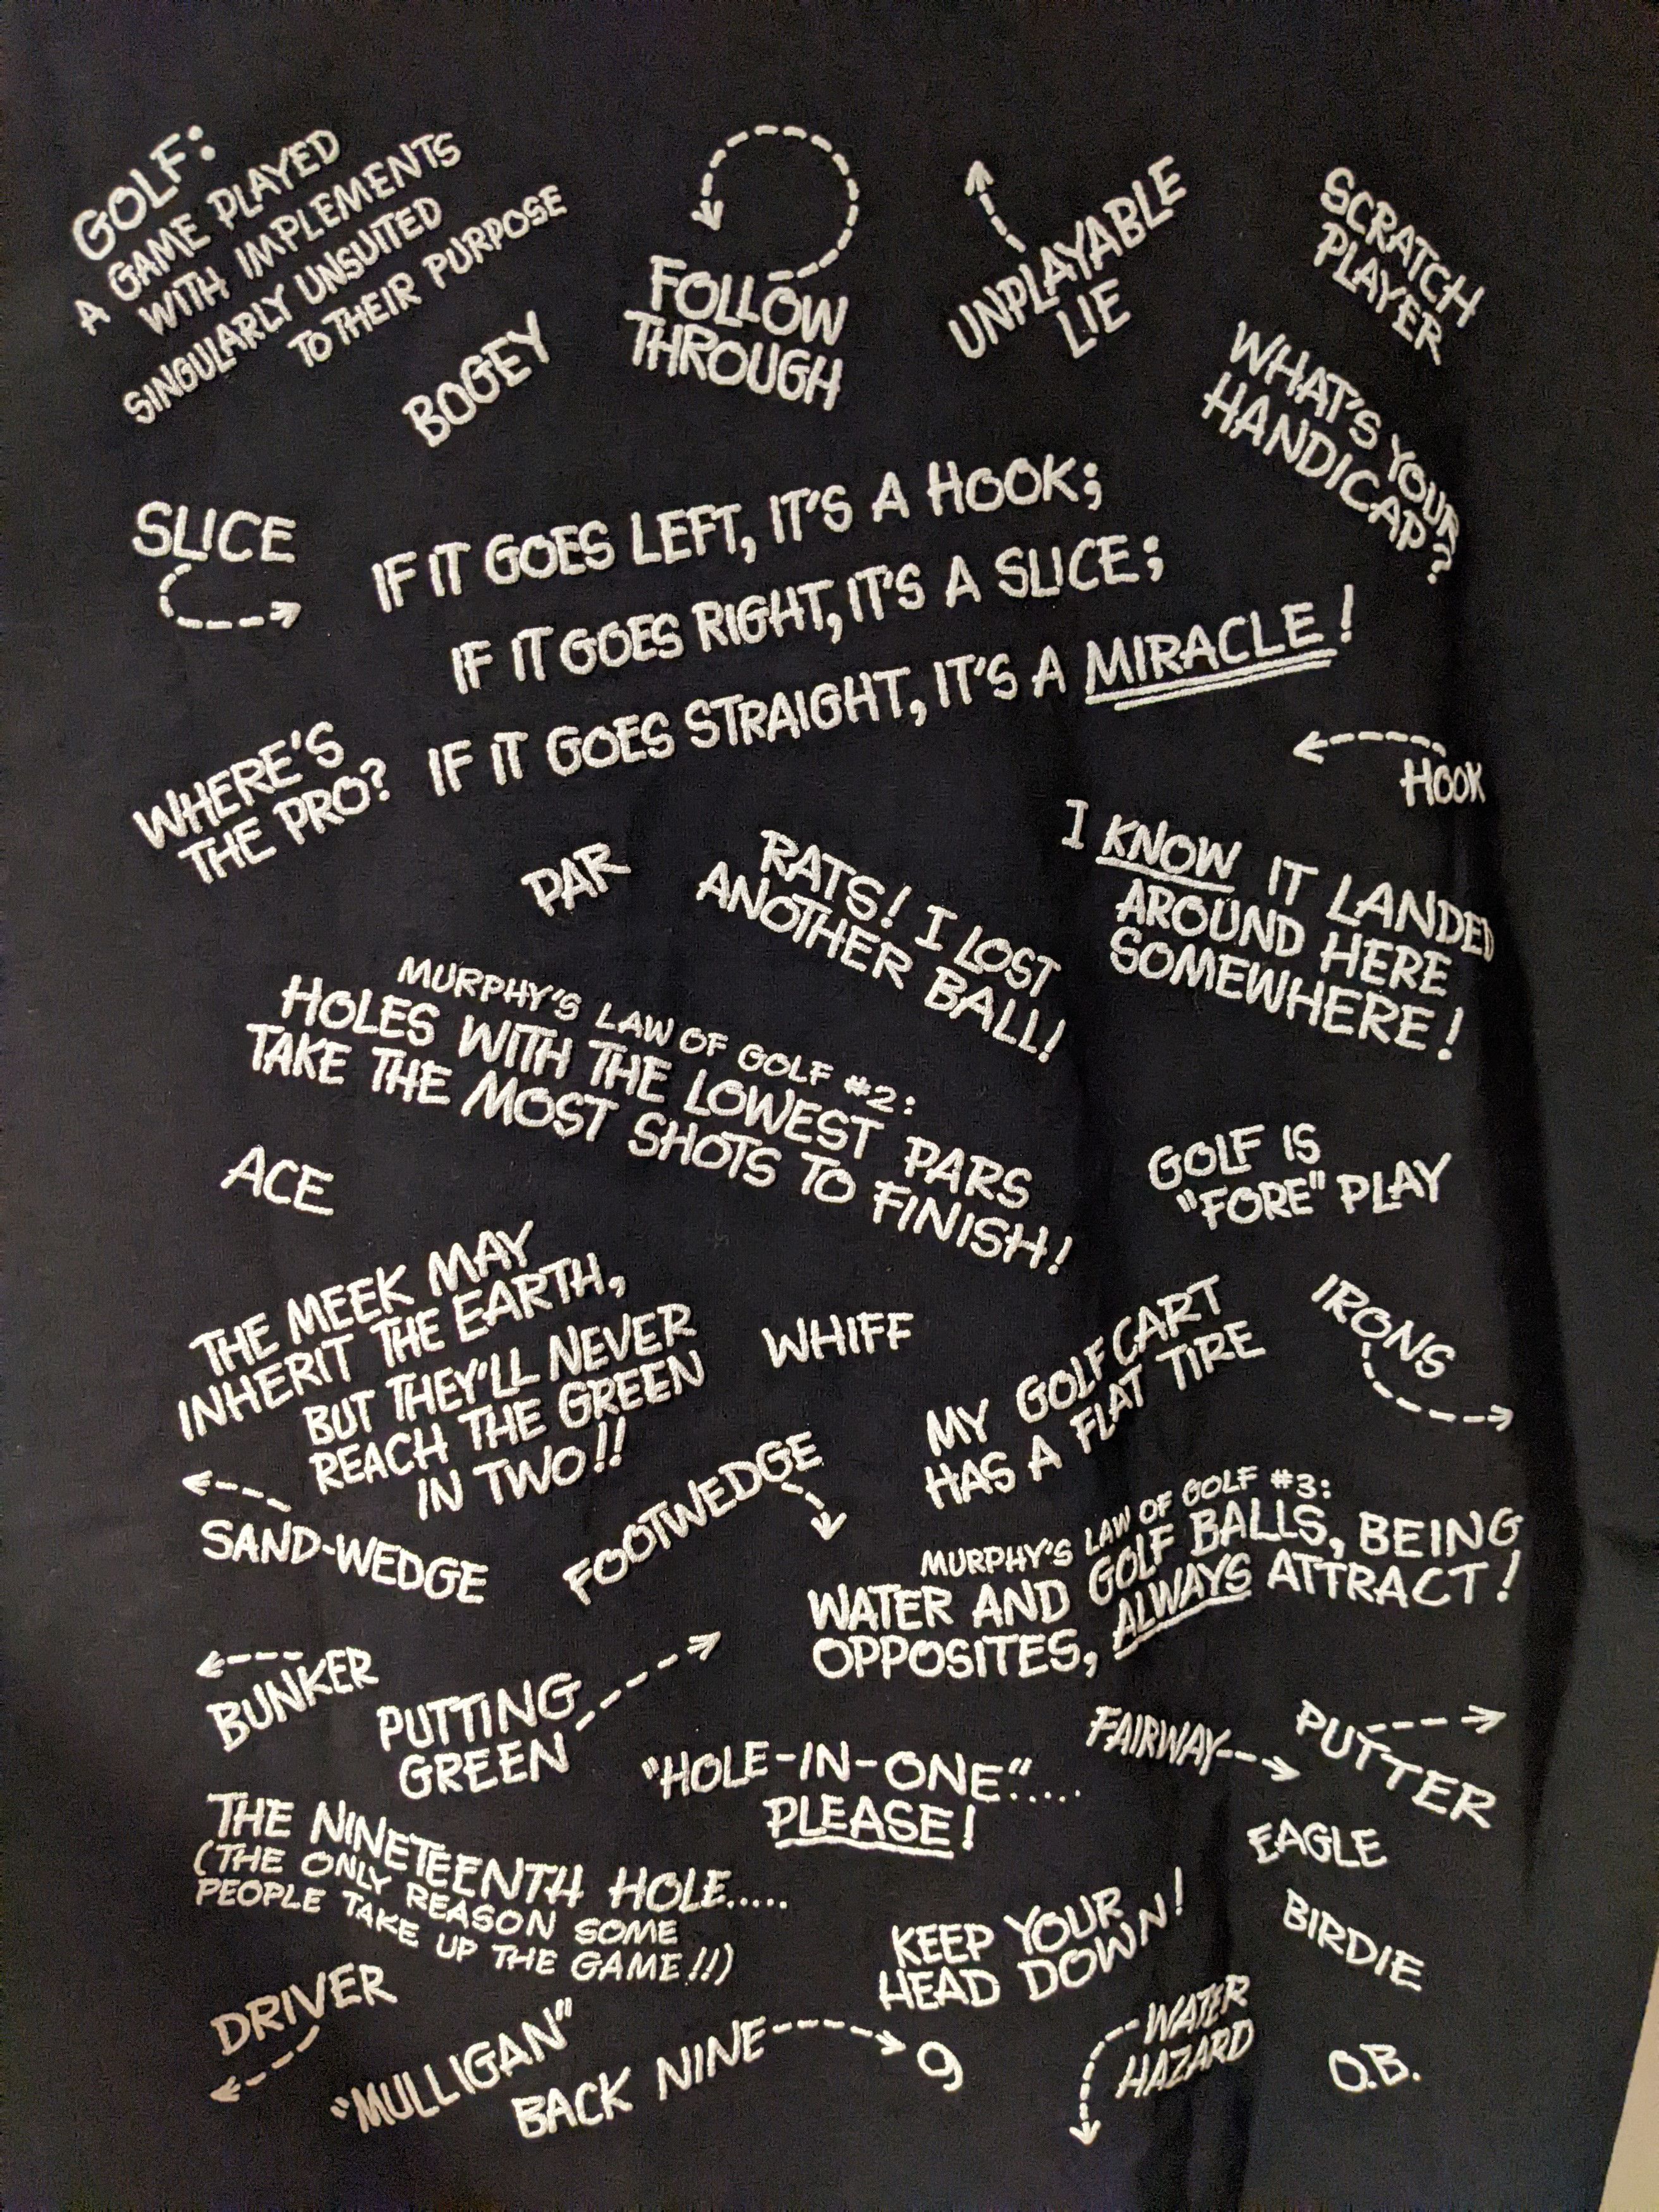 GOLF:
A GAME PLAYED
WITH IMPLEMENTS
SINGULARLY UNSUITED
TO THEIR PURPOSE
BOGEY
FOLLOW
THROUGH
UNPLAYABLE
LIE
SCRATCH
PLAYER
WHAT'S YOUR
HANDICAP?
SLICE
IF IT GOES LEFT, IT'S A HOOK;
IF IT GOES RIGHT, IT'S A SLICE;
IF IT GOES STRAIGHT, IT'S A MIRACLE!
WHERE'S
THE PRO?
HOOK
PAR
RATS! I LOST
ANOTHER BALL!
I KNOW IT LANDED
AROUND HERE
SOMEWHERE!
MURPHY'S LAW OF GOLF #2:
HOLES WITH THE LOWEST PARS
TAKE THE MOST SHOTS TO FINISH!
ACE
GOLF IS
"FORE" PLAY
THE MEEK MAY
INHERIT THE EARTH,
BUT THEY'LL NEVER
REACH THE GREEN
IN TWO!!
WHIFF
MY GOLF CART
HAS A FLAT TIRE
IRONS
SAND-WEDGE
FOOTWEDGE
MURPHY'S LAW OF GOLF #3:
WATER AND GOLF BALLS, BEING
OPPOSITES, ALWAYS ATTRACT!
BUNKER
PUTTING
GREEN
"HOLE-IN-ONE".....
PLEASE!
FAIRWAY
PUTTER
EAGLE
THE NINETEENTH HOLE.....
(THE ONLY REASON SOME
PEOPLE TAKE UP THE GAME!!)
KEEP YOUR
HEAD DOWN!
BIRDIE
DRIVER
"MULLIGAN"
BACK NINE 9
WATER
HAZARD
O.B.